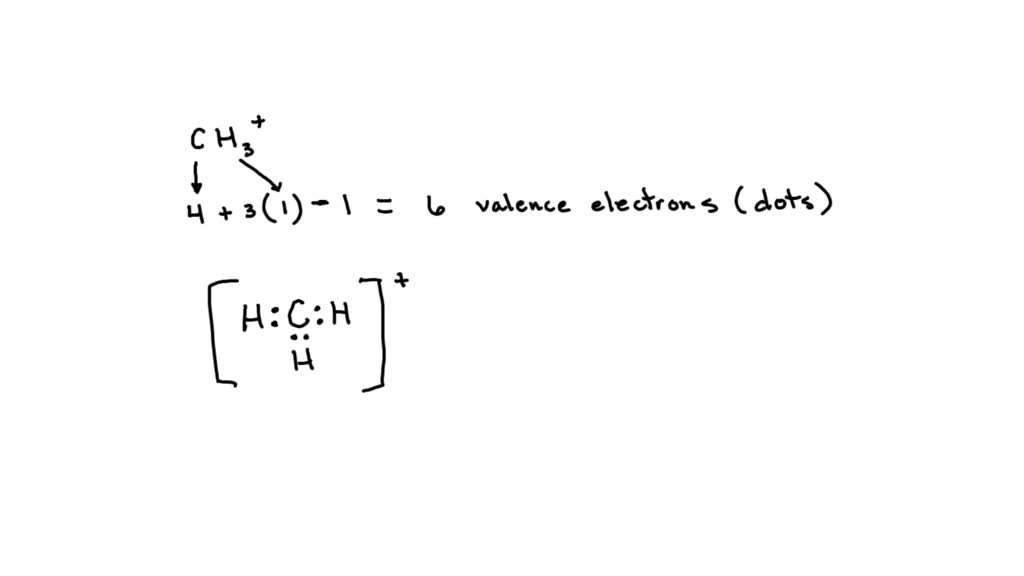 CH₃⁺
4 + 3(1) - 1 = 6 valence electrons (dots)
[H:C:H]⁺
··
H